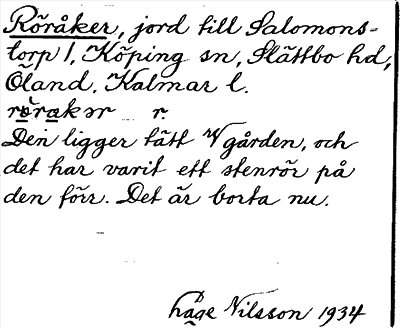 Röråker, jord till Salomons-
torp 1, Köping sn, Slättbo hd,
Öland, Kalmar l.
röraker r.
Den ligger tätt V gården, och
det har varit ett stenrör på
den förr. Det är borta nu.
Håge Nilsson 1934